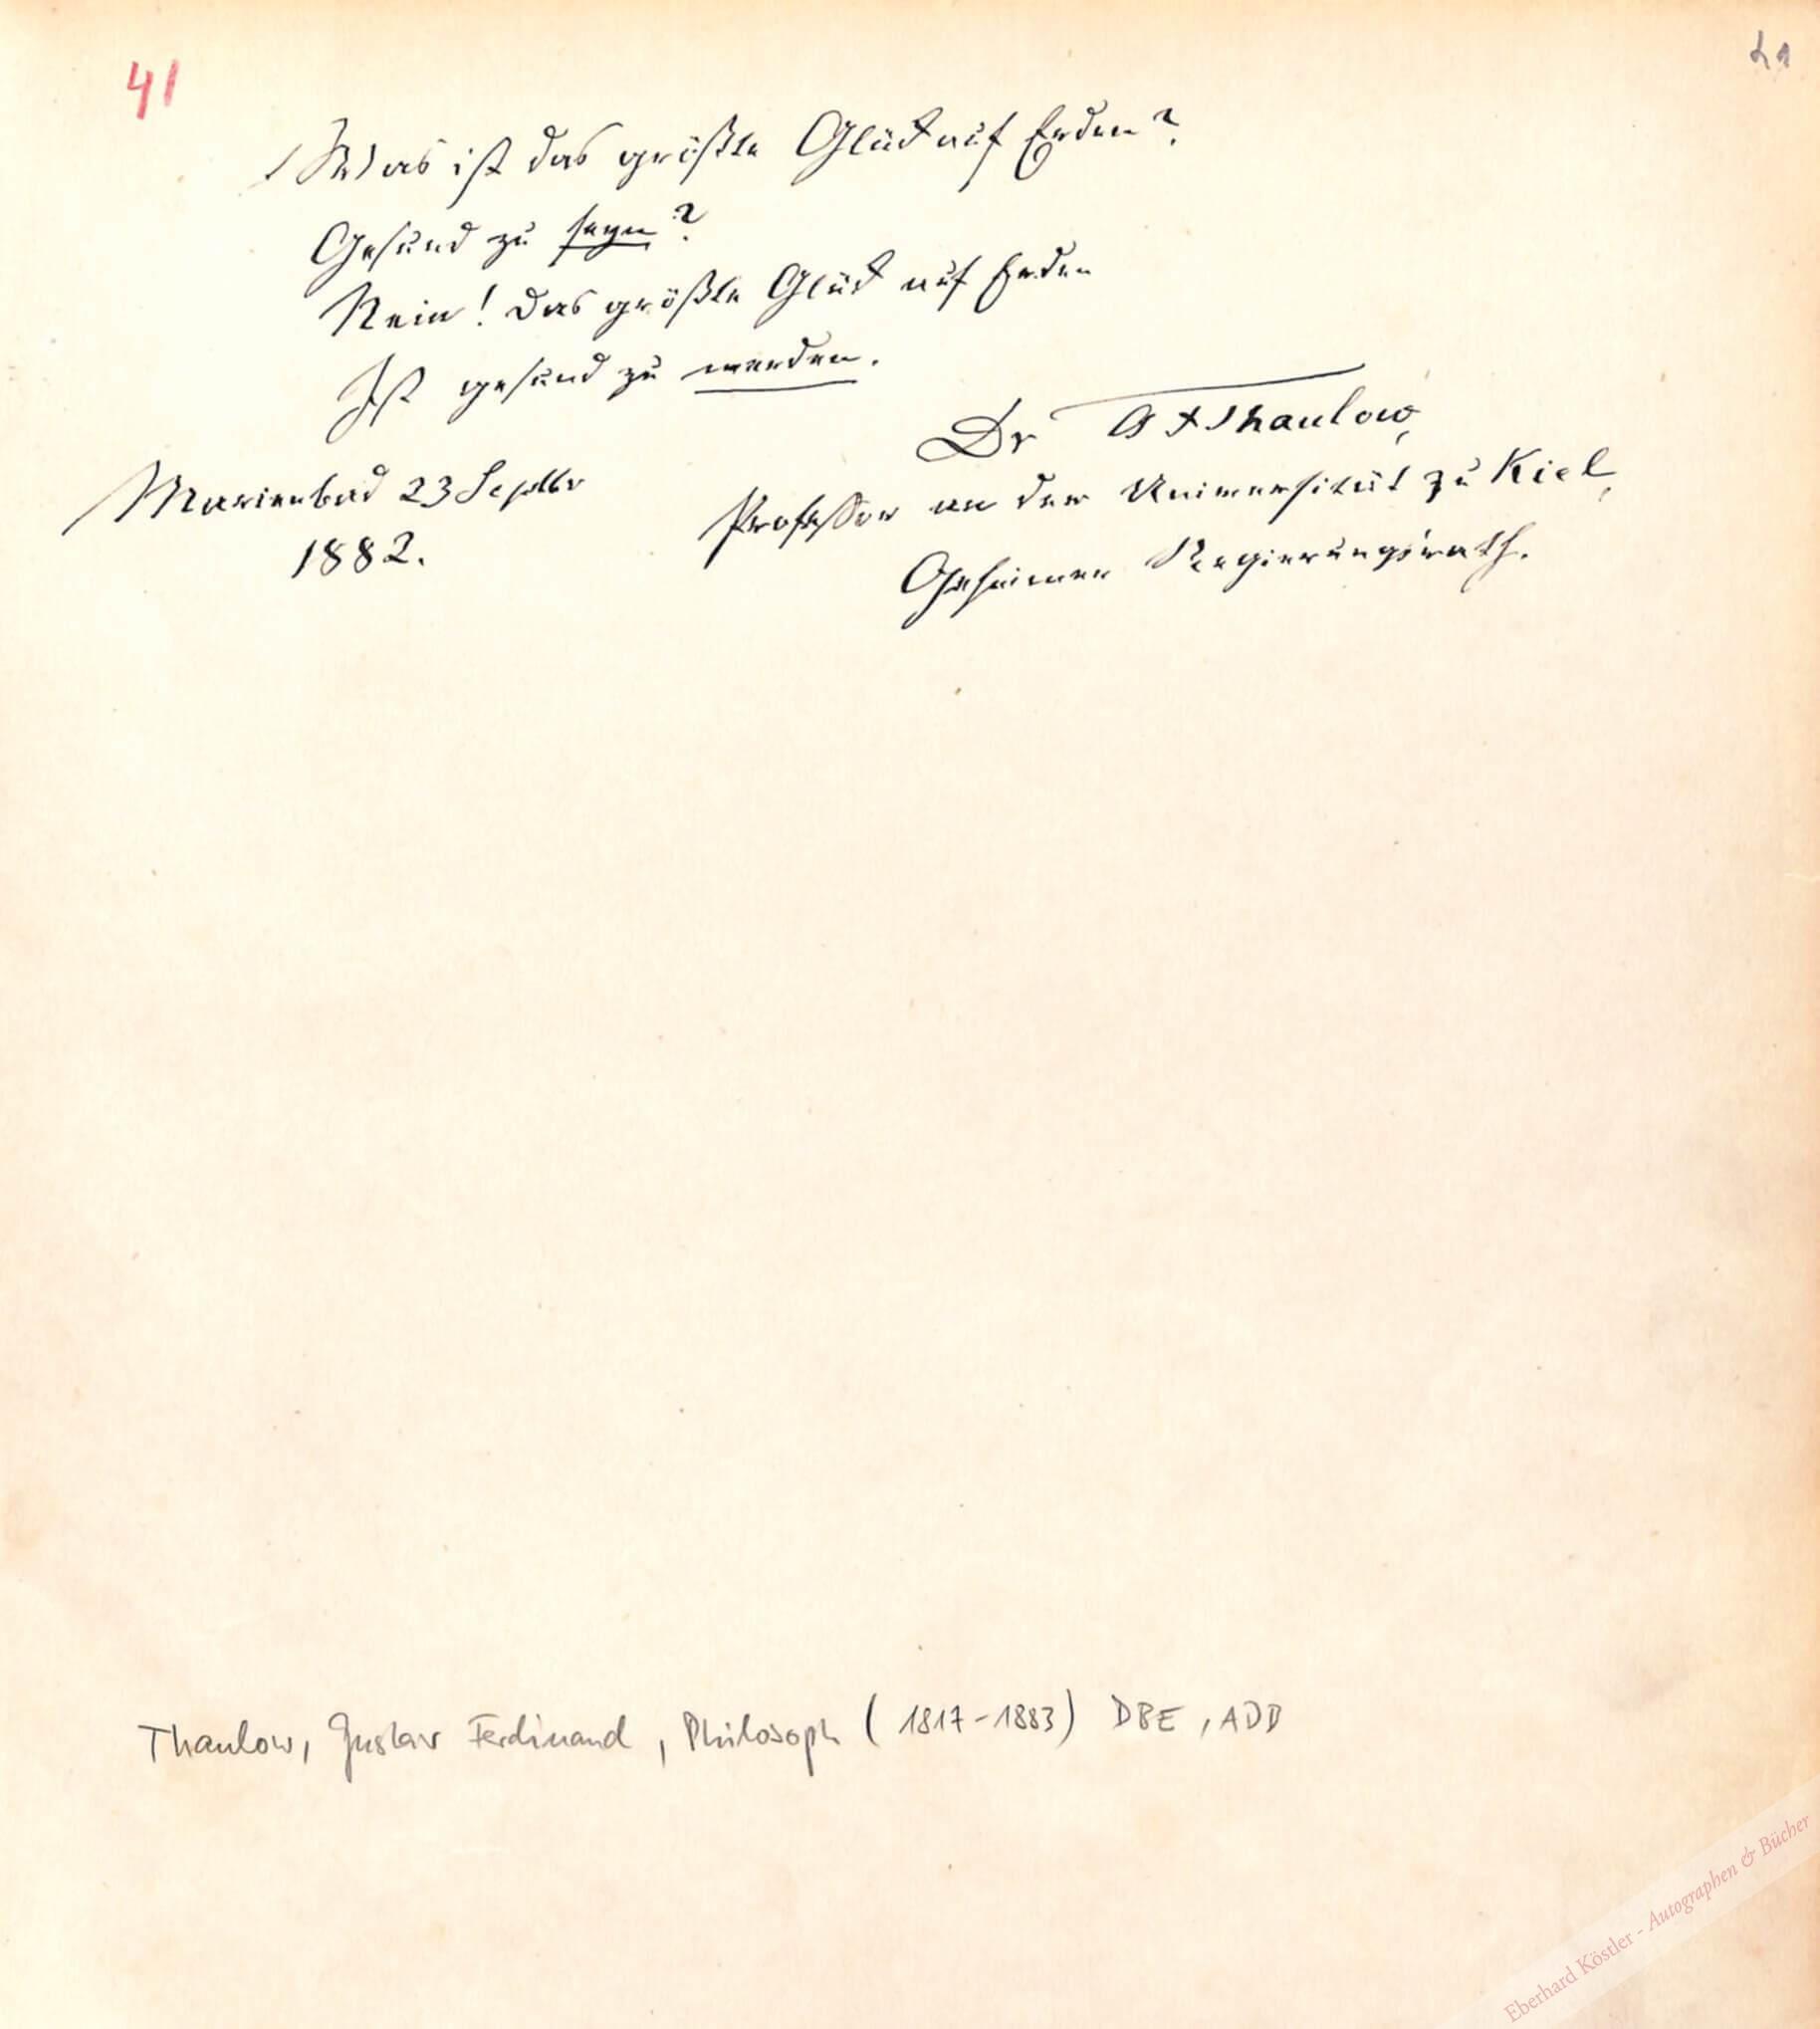 41
21
Was ist das größte Glück auf Erden?
Gesund zu seyn?
Nein! Das größte Glück auf Erden
Ist gesund zu werden.
Dr G F Thaulow,
Professor an der Universität zu Kiel,
Geheimer Regierungsrath.
Marienbad 23 Septbr
1882.
Thaulow, Gustav Ferdinand, Philosoph (1817-1883) DBE, ADB
Eberhard Köstler - Autographen & Bücher